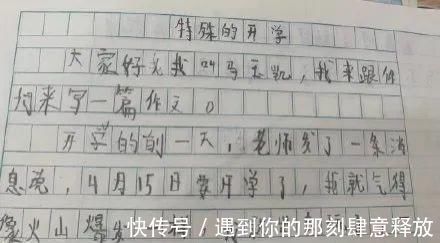 特殊的开学
大家好,我叫马玉凯,我来跟你
们来写一篇作文。
开学的前一天,老师发了一条消
息说,4月15日要开学了,我就气得
像火山爆发
快传号/遇到你的那刻肆意释放